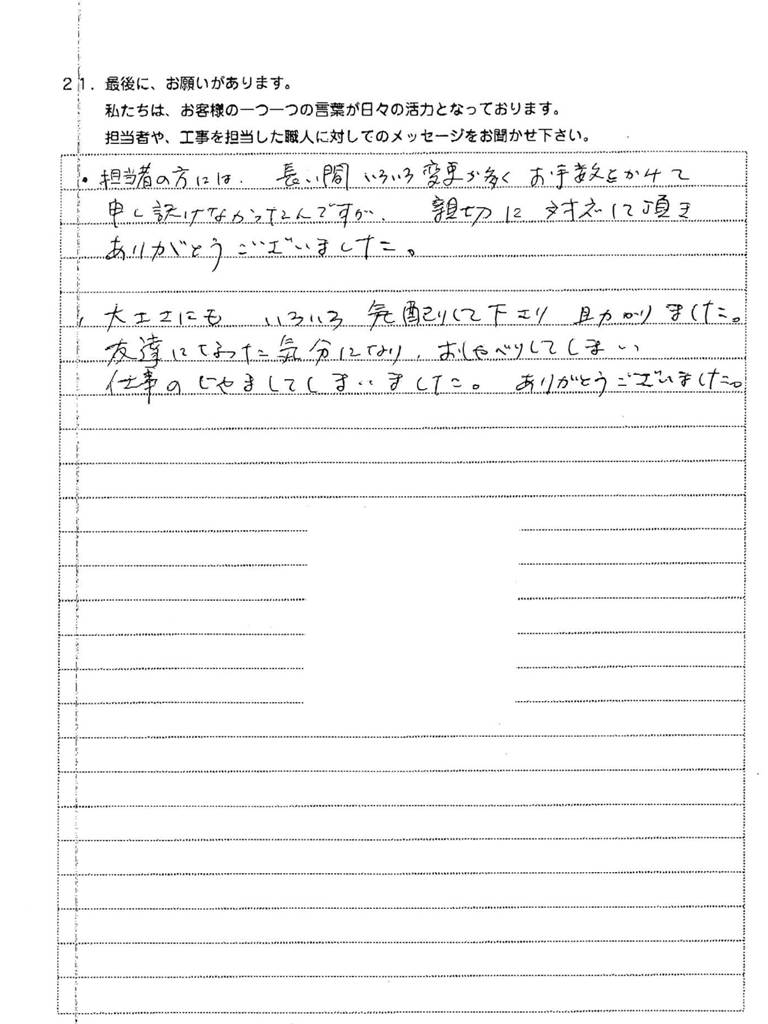 21．最後に、お願いがあります。
私たちは、お客様の一つ一つの言葉が日々の活力となっております。
担当者や、工事を担当した職人に対してのメッセージをお聞かせ下さい。
・担当者の方には、長い間いろいろ変更が多くお手数をかけて
申し訳けなかったんですが、親切に対応して頂き
ありがとうございました。
、大工さにも いろいろ気配りして下さり 助かりました。
友達になった気分になり、おしゃべりしてしまい
仕事のじゃましてしまいました。ありがとうございました。